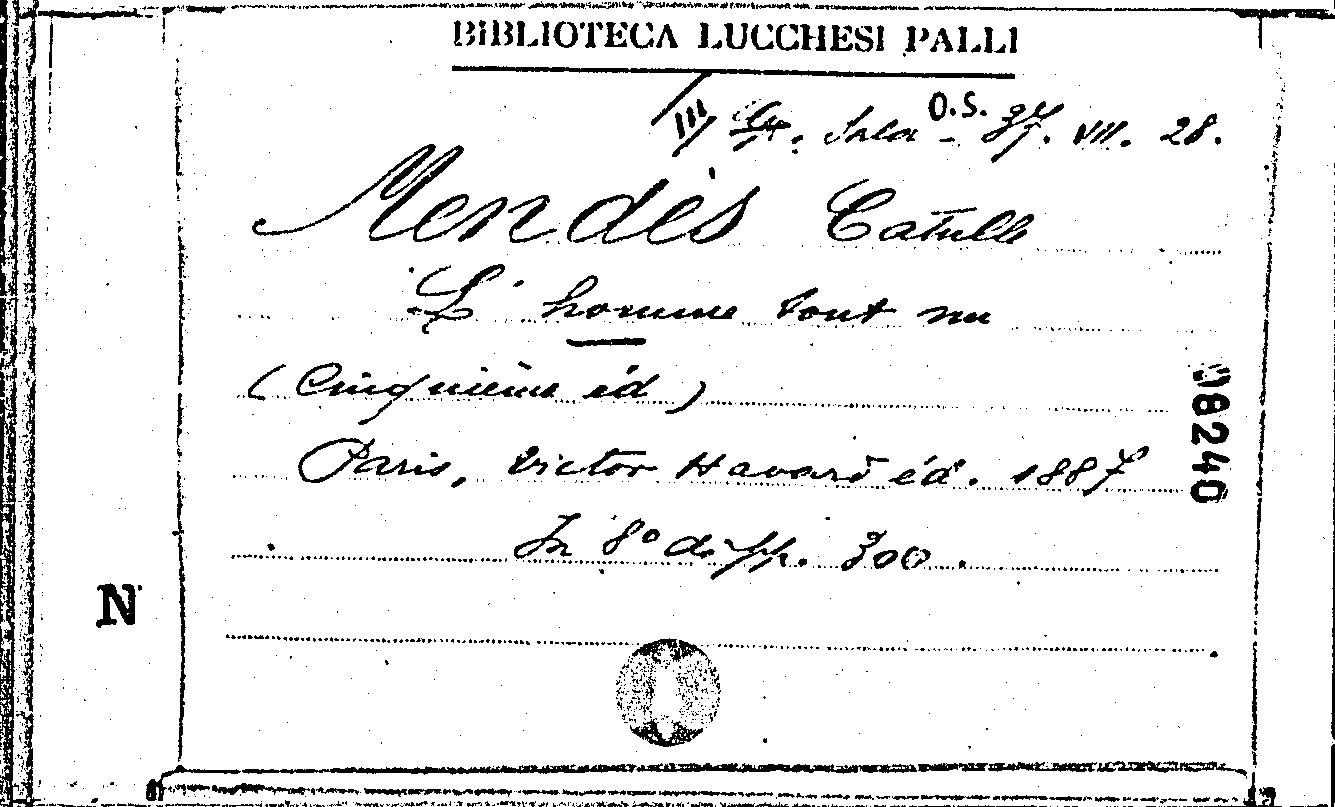 BIBLIOTECA LUCCHESI PALLI
III Sala O.S. 37. VII. 28.
Mendès Catulle
L'homme tout nu
(Cinquième éd)
Paris, Victor Havard éd. 1887
In 8º di pp. 300.
98240
N